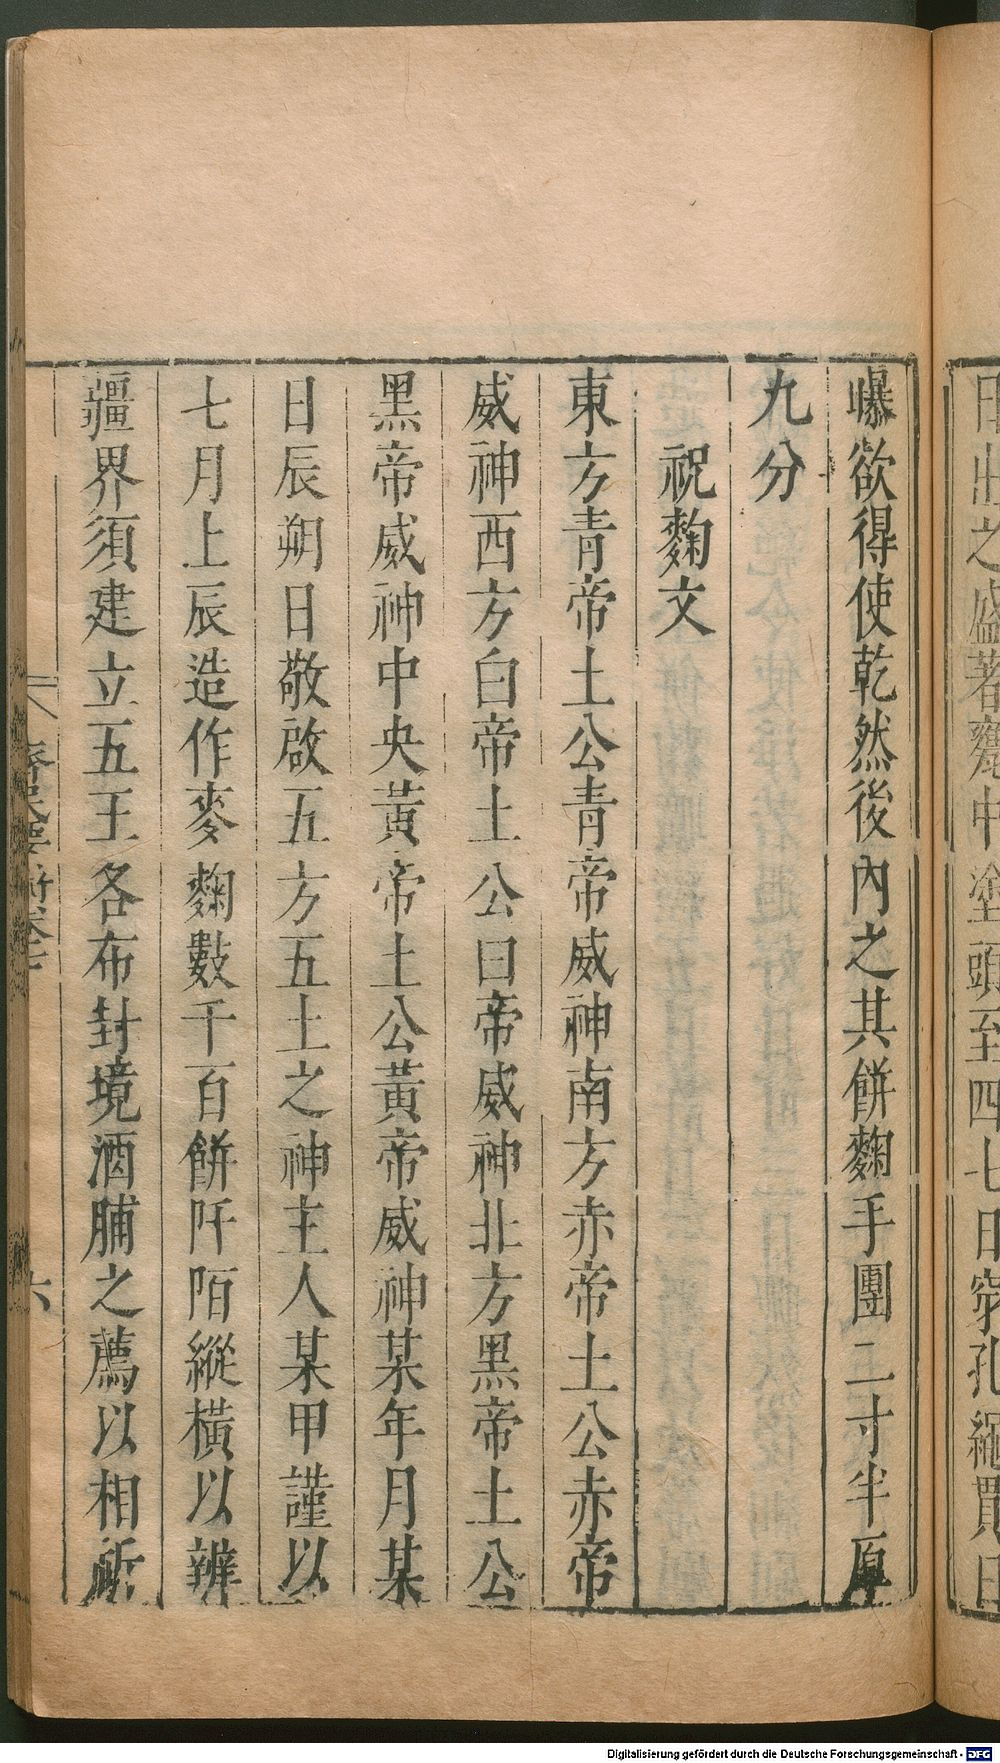 曝欲得使乾然後內之其餅麴手團二寸半厚
九分
祝麴文
東方青帝土公青帝威神南方赤帝土公赤帝
威神西方白帝土公白帝威神北方黑帝土公
黑帝威神中央黃帝土公黃帝威神某年月某
日辰朔日敬啟五方五土之神主人某甲謹以
七月上辰造作麥麴數千百餅阡陌縱橫以辨
疆界須建立五王各布封境酒脯之薦以相祈
齊民要術卷七
六
出之盛著甕中塗頭至四七日穿孔繩貫日
Digitalisierung gefördert durch die Deutsche Forschungsgemeinschaft - DFG